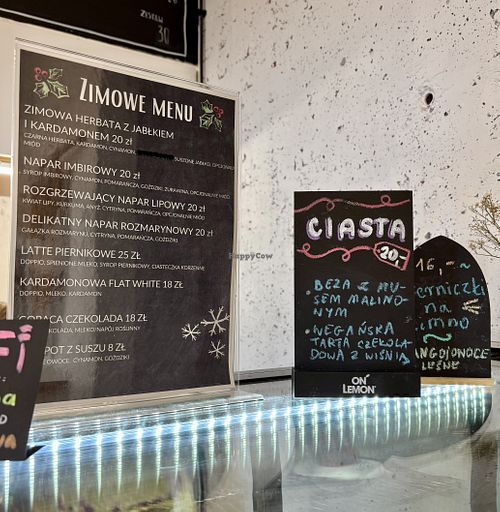 ZESTAW
30
ZIMOWE MENU
ZIMOWA HERBATA Z JABŁKIEM
I KARDAMONEM 20 zł
CZARNA HERBATA, KARDAMON, CYNAMON, SUSZONE JABŁKO, OPCJONALNIE
MIÓD
NAPAR IMBIROWY 20 zł
SYROP IMBIROWY, CYNAMON, POMARAŃCZA, GOŹDZIKI, ŻURAWINA, OPCJONALNIE MIÓD
ROZGRZEWAJĄCY NAPAR LIPOWY 20 zł
KWIAT LIPY, KURKUMA, ANYŻ, CYTRYNA, POMARAŃCZA, OPCJONALNIE MIÓD
DELIKATNY NAPAR ROZMARYNOWY 20 zł
GAŁĄZKA ROZMARYNU, CYTRYNA, POMARAŃCZA, GOŹDZIKI
LATTE PIERNIKOWE 25 ZŁ
DOPPIO, SPIENIONE MLEKO, SYROP PIERNIKOWY, CIASTECZKA KORZENNE
KARDAMONOWA FLAT WHITE 18 ZŁ
DOPPIO, MLEKO, KARDAMON
GORĄCA CZEKOLADA 18 ZŁ
KOLADA, MLEKO/NAPÓJ ROŚLINNY
POT Z SUSZU 8 ZŁ
OWOCE, CYNAMON, GOŹDZIKI
HappyCow
CIASTA
20,-
• BEZA Z MU-
SEM MALINO-
NYM
• WEGAŃSKA
TARTA CZEKOLA-
DOWA Z WIŚNIĄ
ON LEMON
16,-
ERNICZKI
na
IMNO
ANGO|OWOCE
LEŚNE